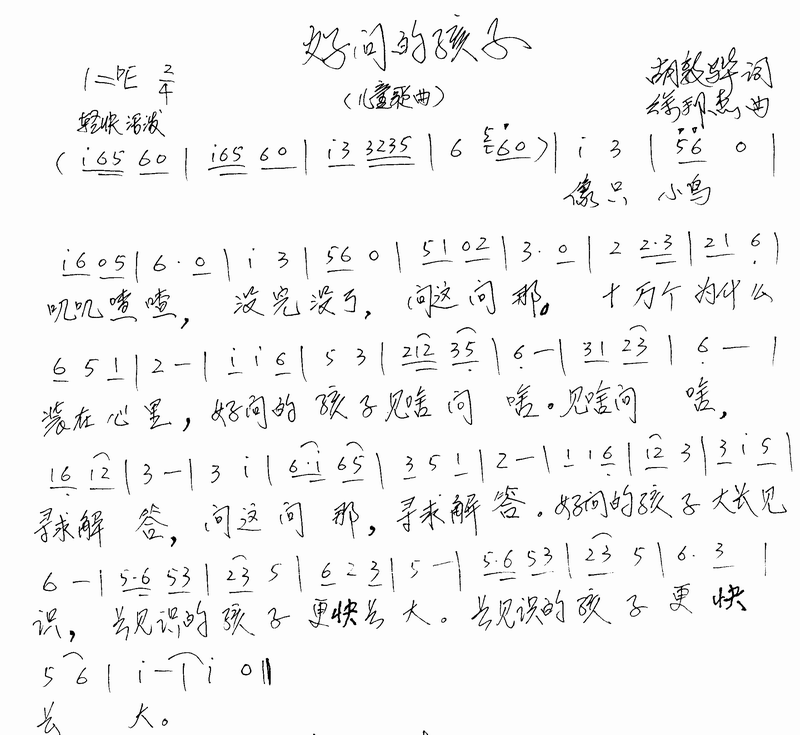 好问的孩子
1=♭E 2/4
(儿童歌曲)
胡敦华 词
轻快 活泼
徐邦杰 曲
( i65 60 | i65 60 | i3 3235 | 6 5 60 ) | i 3 | 56 0 |
像只 小鸟
i6 05 | 6· 0 | i 3 | 56 0 | 51 02 | 3· 0 | 2 2·3 | 21 6 |
叽叽喳喳, 没完没了, 问这问那。 十万个为什么
6 5 1 | 2 - | i i 6 | 5 3 | 212 35 | 6 - | 31 23 | 6 - |
装在心里, 好问的孩子见啥问 啥。见啥问 啥,
16 12 | 3 - | 3 i | 6·i 65 | 3 5 1 | 2 - | 1 16 | 12 3 | 3 i 5 |
寻求解 答, 问这问 那, 寻求解答。好问的孩子大长见
6 - | 5·6 53 | 23 5 | 6 2 3 | 5 - | 5·6 53 | 23 5 | 6· 3 |
识, 长见识的孩子更快长大。长见识的孩子更快
5 6 | i - | i 0 ‖
长 大。